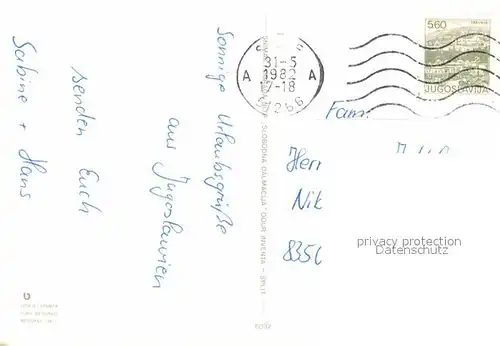 Sonnige Urlaubsgrüße
aus Jugoslawien
senden Euch
Sabine + Hans
31-5
1982
17-18
A A
5.60
JUGOSLAVIJA
Fam.
Herr
Nik
8350
privacy protection
watermark
SLOBODNA DALMACIJA - OOUR INVENTA - SPLIT